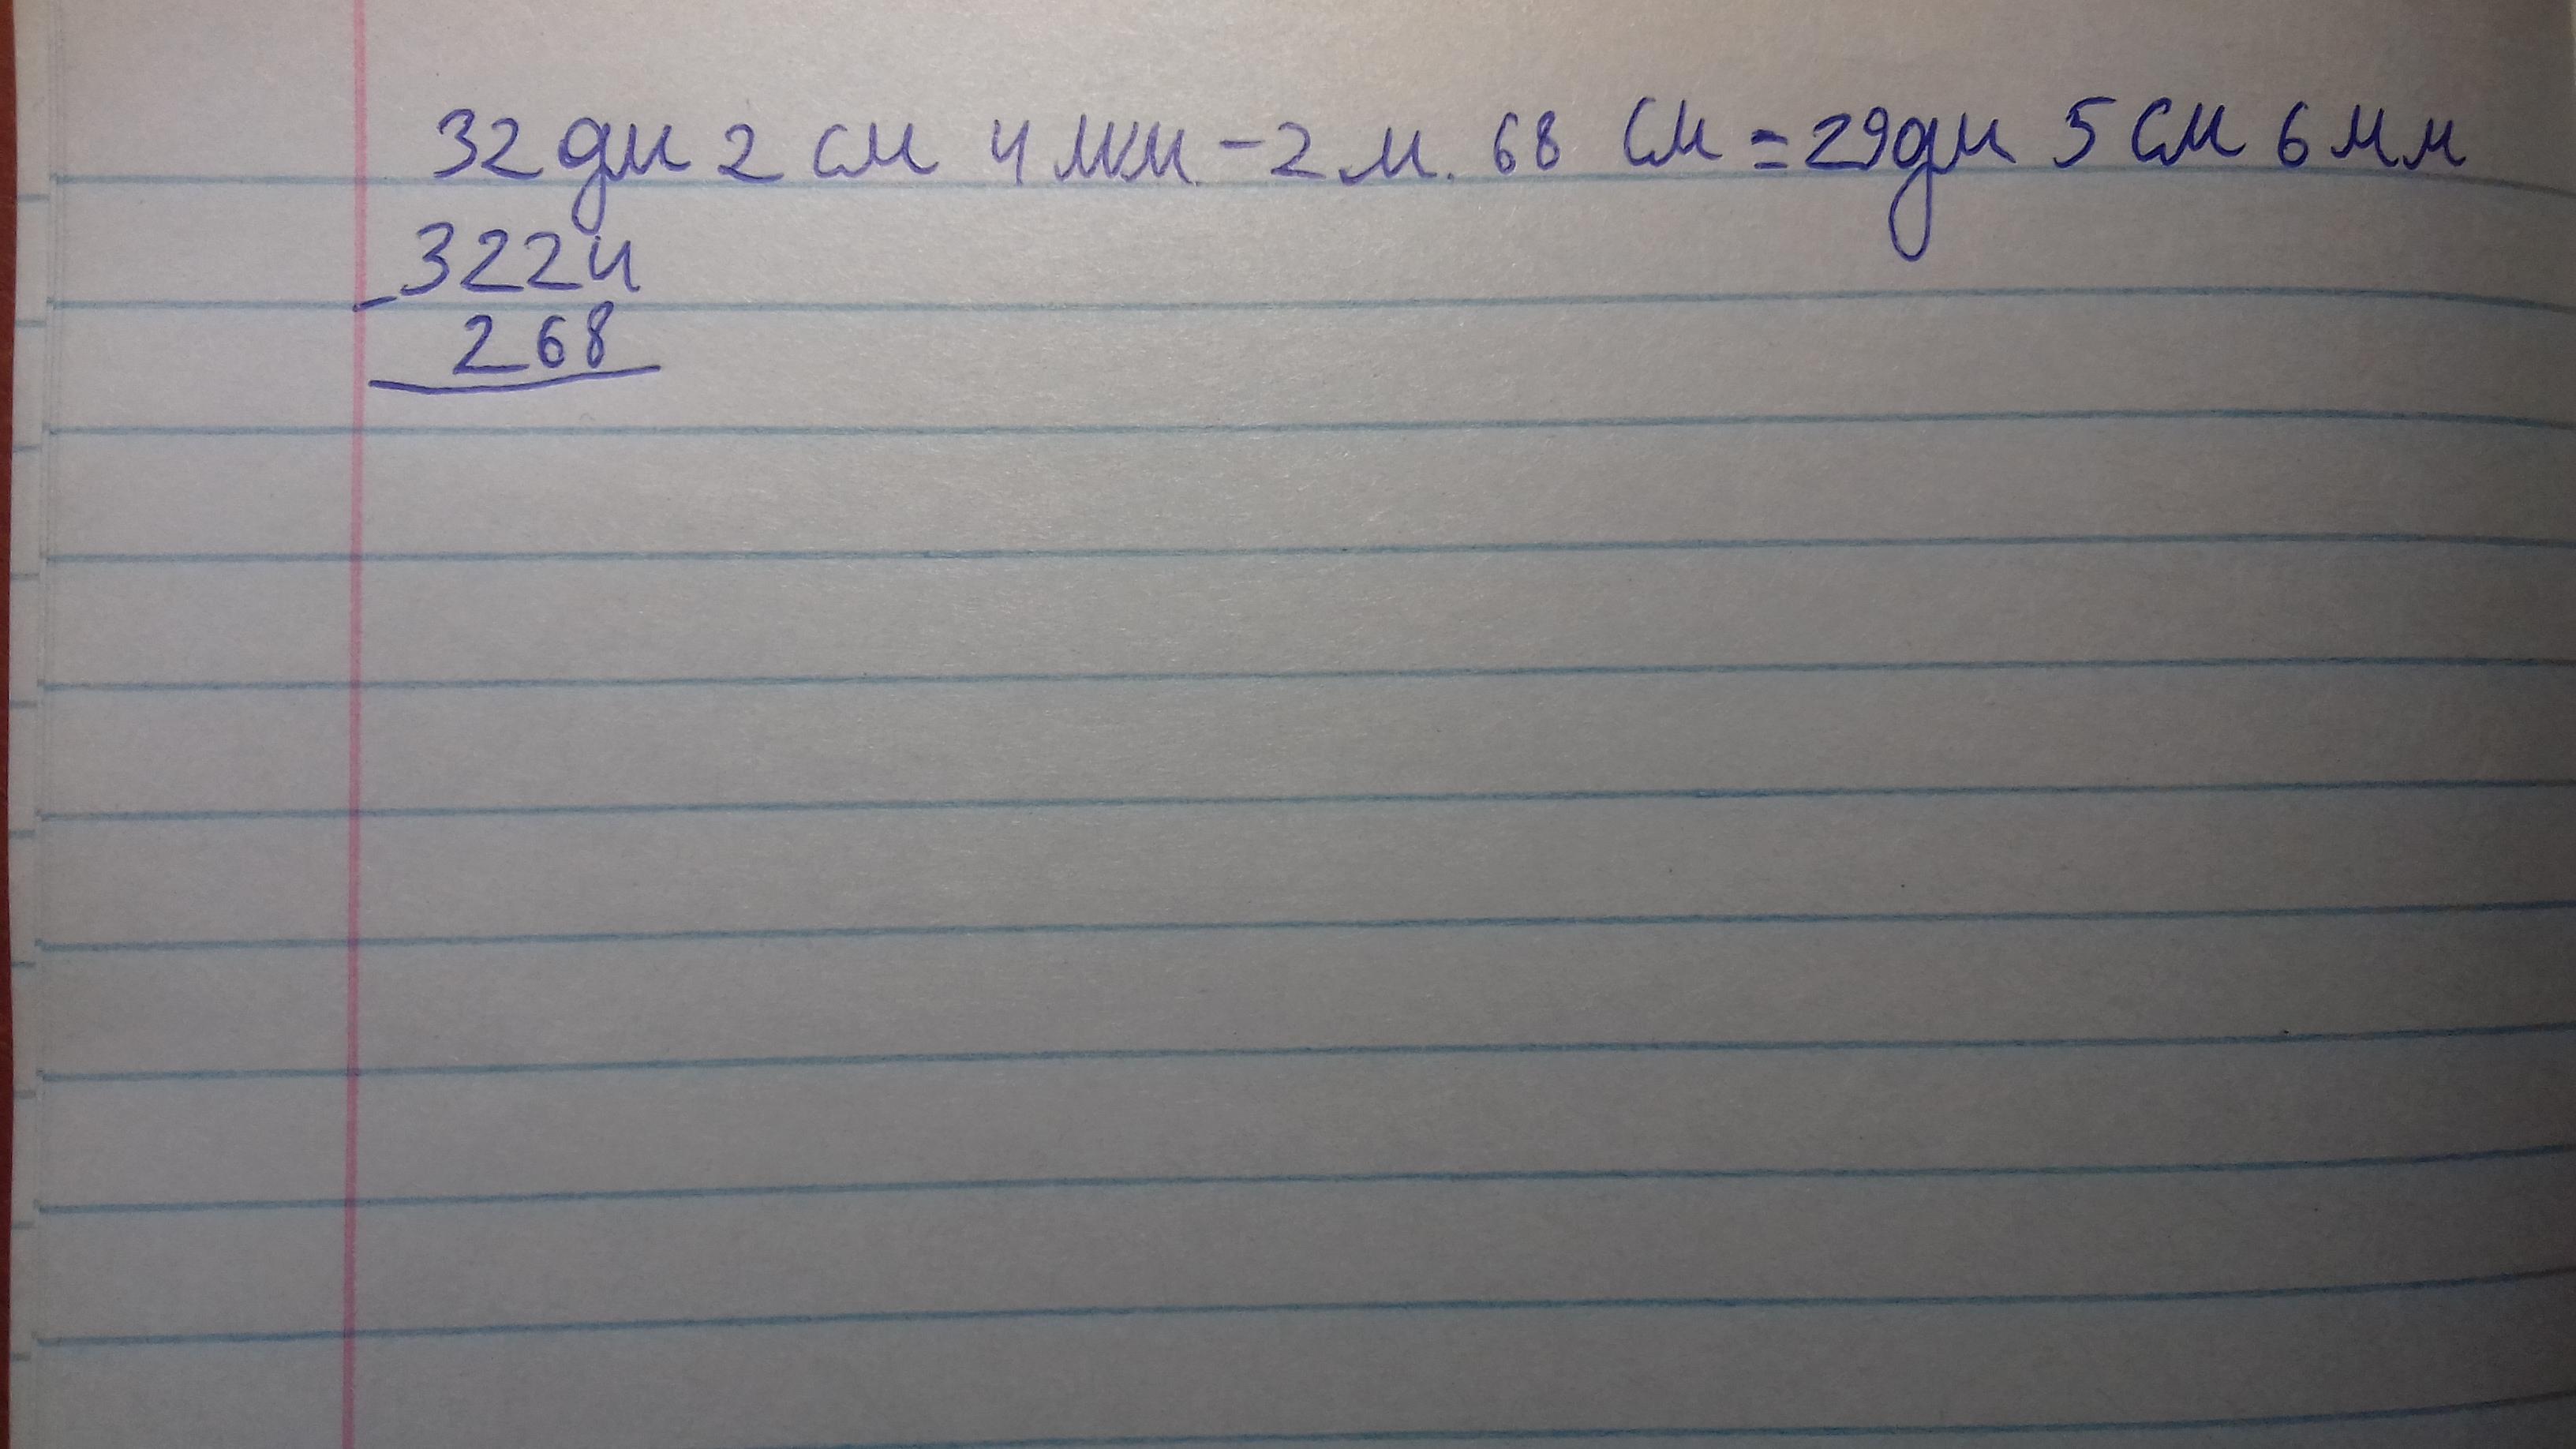 32 дм 2 см 4 мм. - 2 м. 68 см = 29 дм 5 см 6 мм
- 3224
268